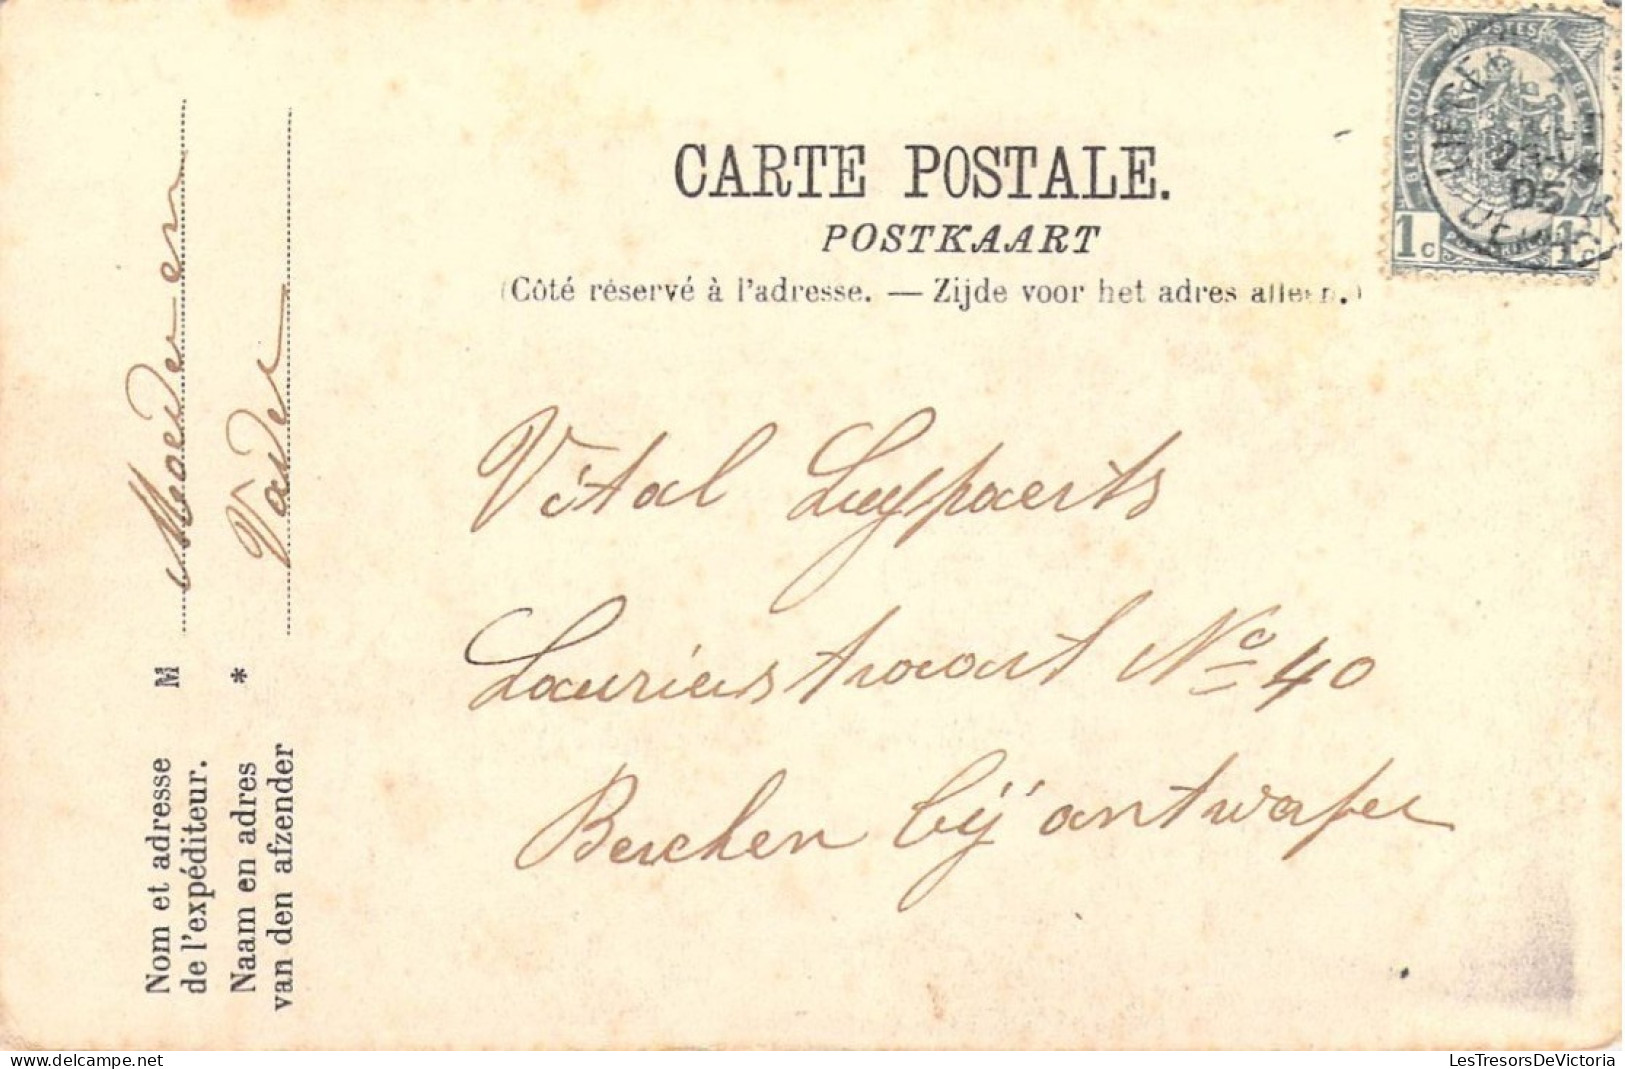 CARTE POSTALE.
POSTKAART
(Côté réservé à l'adresse. — Zijde voor het adres alleen.)
POSTES
BELGIQUE
1c
1c
LIERRE
05
Vital Luypaerts
Lauriusstraat No 40
Berchen bij antwerpen
Moeder en
Vader
M
*
Nom et adresse
de l'expéditeur.
Naam en adres
van den afzender
LesTresorsDeVictoria